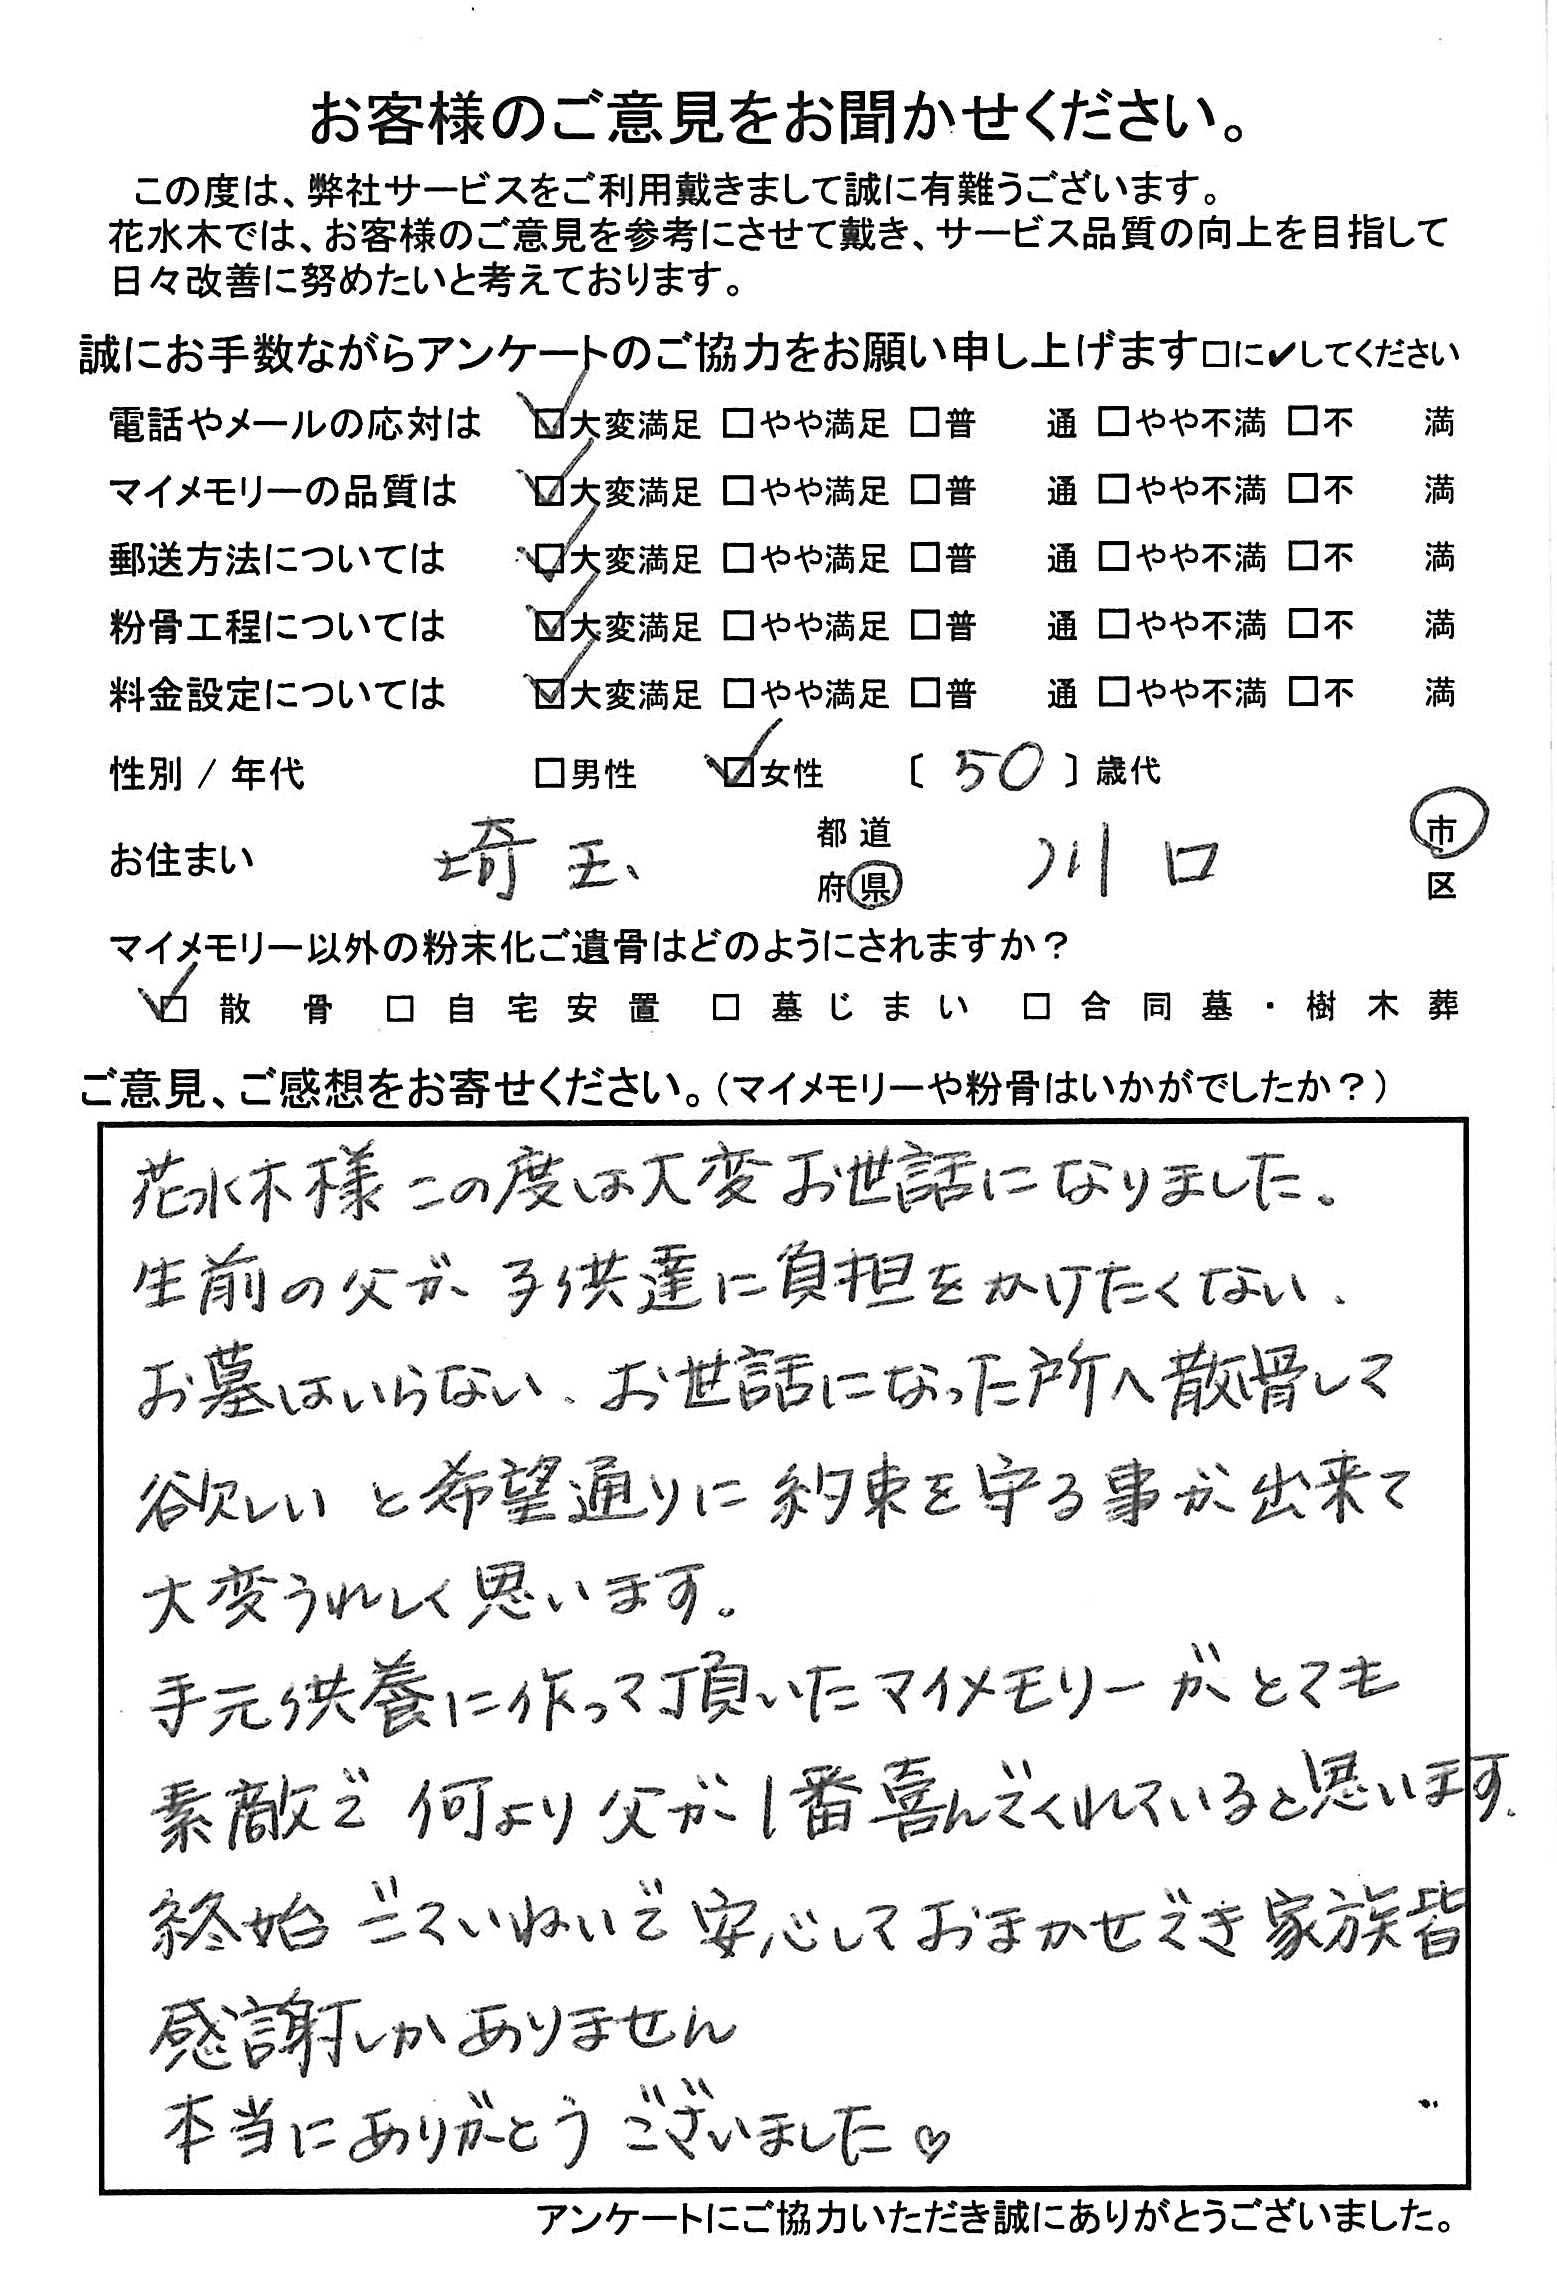 お客様のご意見をお聞かせください。
この度は、弊社サービスをご利用戴きまして誠に有難うございます。
花水木では、お客様のご意見を参考にさせて戴き、サービス品質の向上を目指して
日々改善に努めたいと考えております。
誠にお手数ながらアンケートのご協力をお願い申し上げます□に✔してください
電話やメールの応対は ☑大変満足 □やや満足 □普 通 □やや不満 □不 満
マイメモリーの品質は ☑大変満足 □やや満足 □普 通 □やや不満 □不 満
郵送方法については ☑大変満足 □やや満足 □普 通 □やや不満 □不 満
粉骨工程については ☑大変満足 □やや満足 □普 通 □やや不満 □不 満
料金設定については ☑大変満足 □やや満足 □普 通 □やや不満 □不 満
性別 / 年代 □男性 ☑女性 〔 50 〕歳代
お住まい 埼玉 都道府県 川口 市区
マイメモリー以外の粉末化ご遺骨はどのようにされますか？
☑ 散骨 □ 自宅安置 □ 墓じまい □ 合同墓・樹木葬
ご意見、ご感想をお寄せください。（マイメモリーや粉骨はいかがでしたか？）
花水木様この度は大変お世話になりました。
生前の父が、子供達に負担をかけたくない、
お墓はいらない、お世話になった所へ散骨して
欲しいと希望通りに約束を守る事が出来て
大変うれしく思います。
手元供養に作って頂いたマイメモリーがとても
素敵で何より父が1番喜んでくれていると思います。
終始ごていねいで安心しておまかせでき家族皆
感謝しかありません
本当にありがとうございました♡
アンケートにご協力いただき誠にありがとうございました。